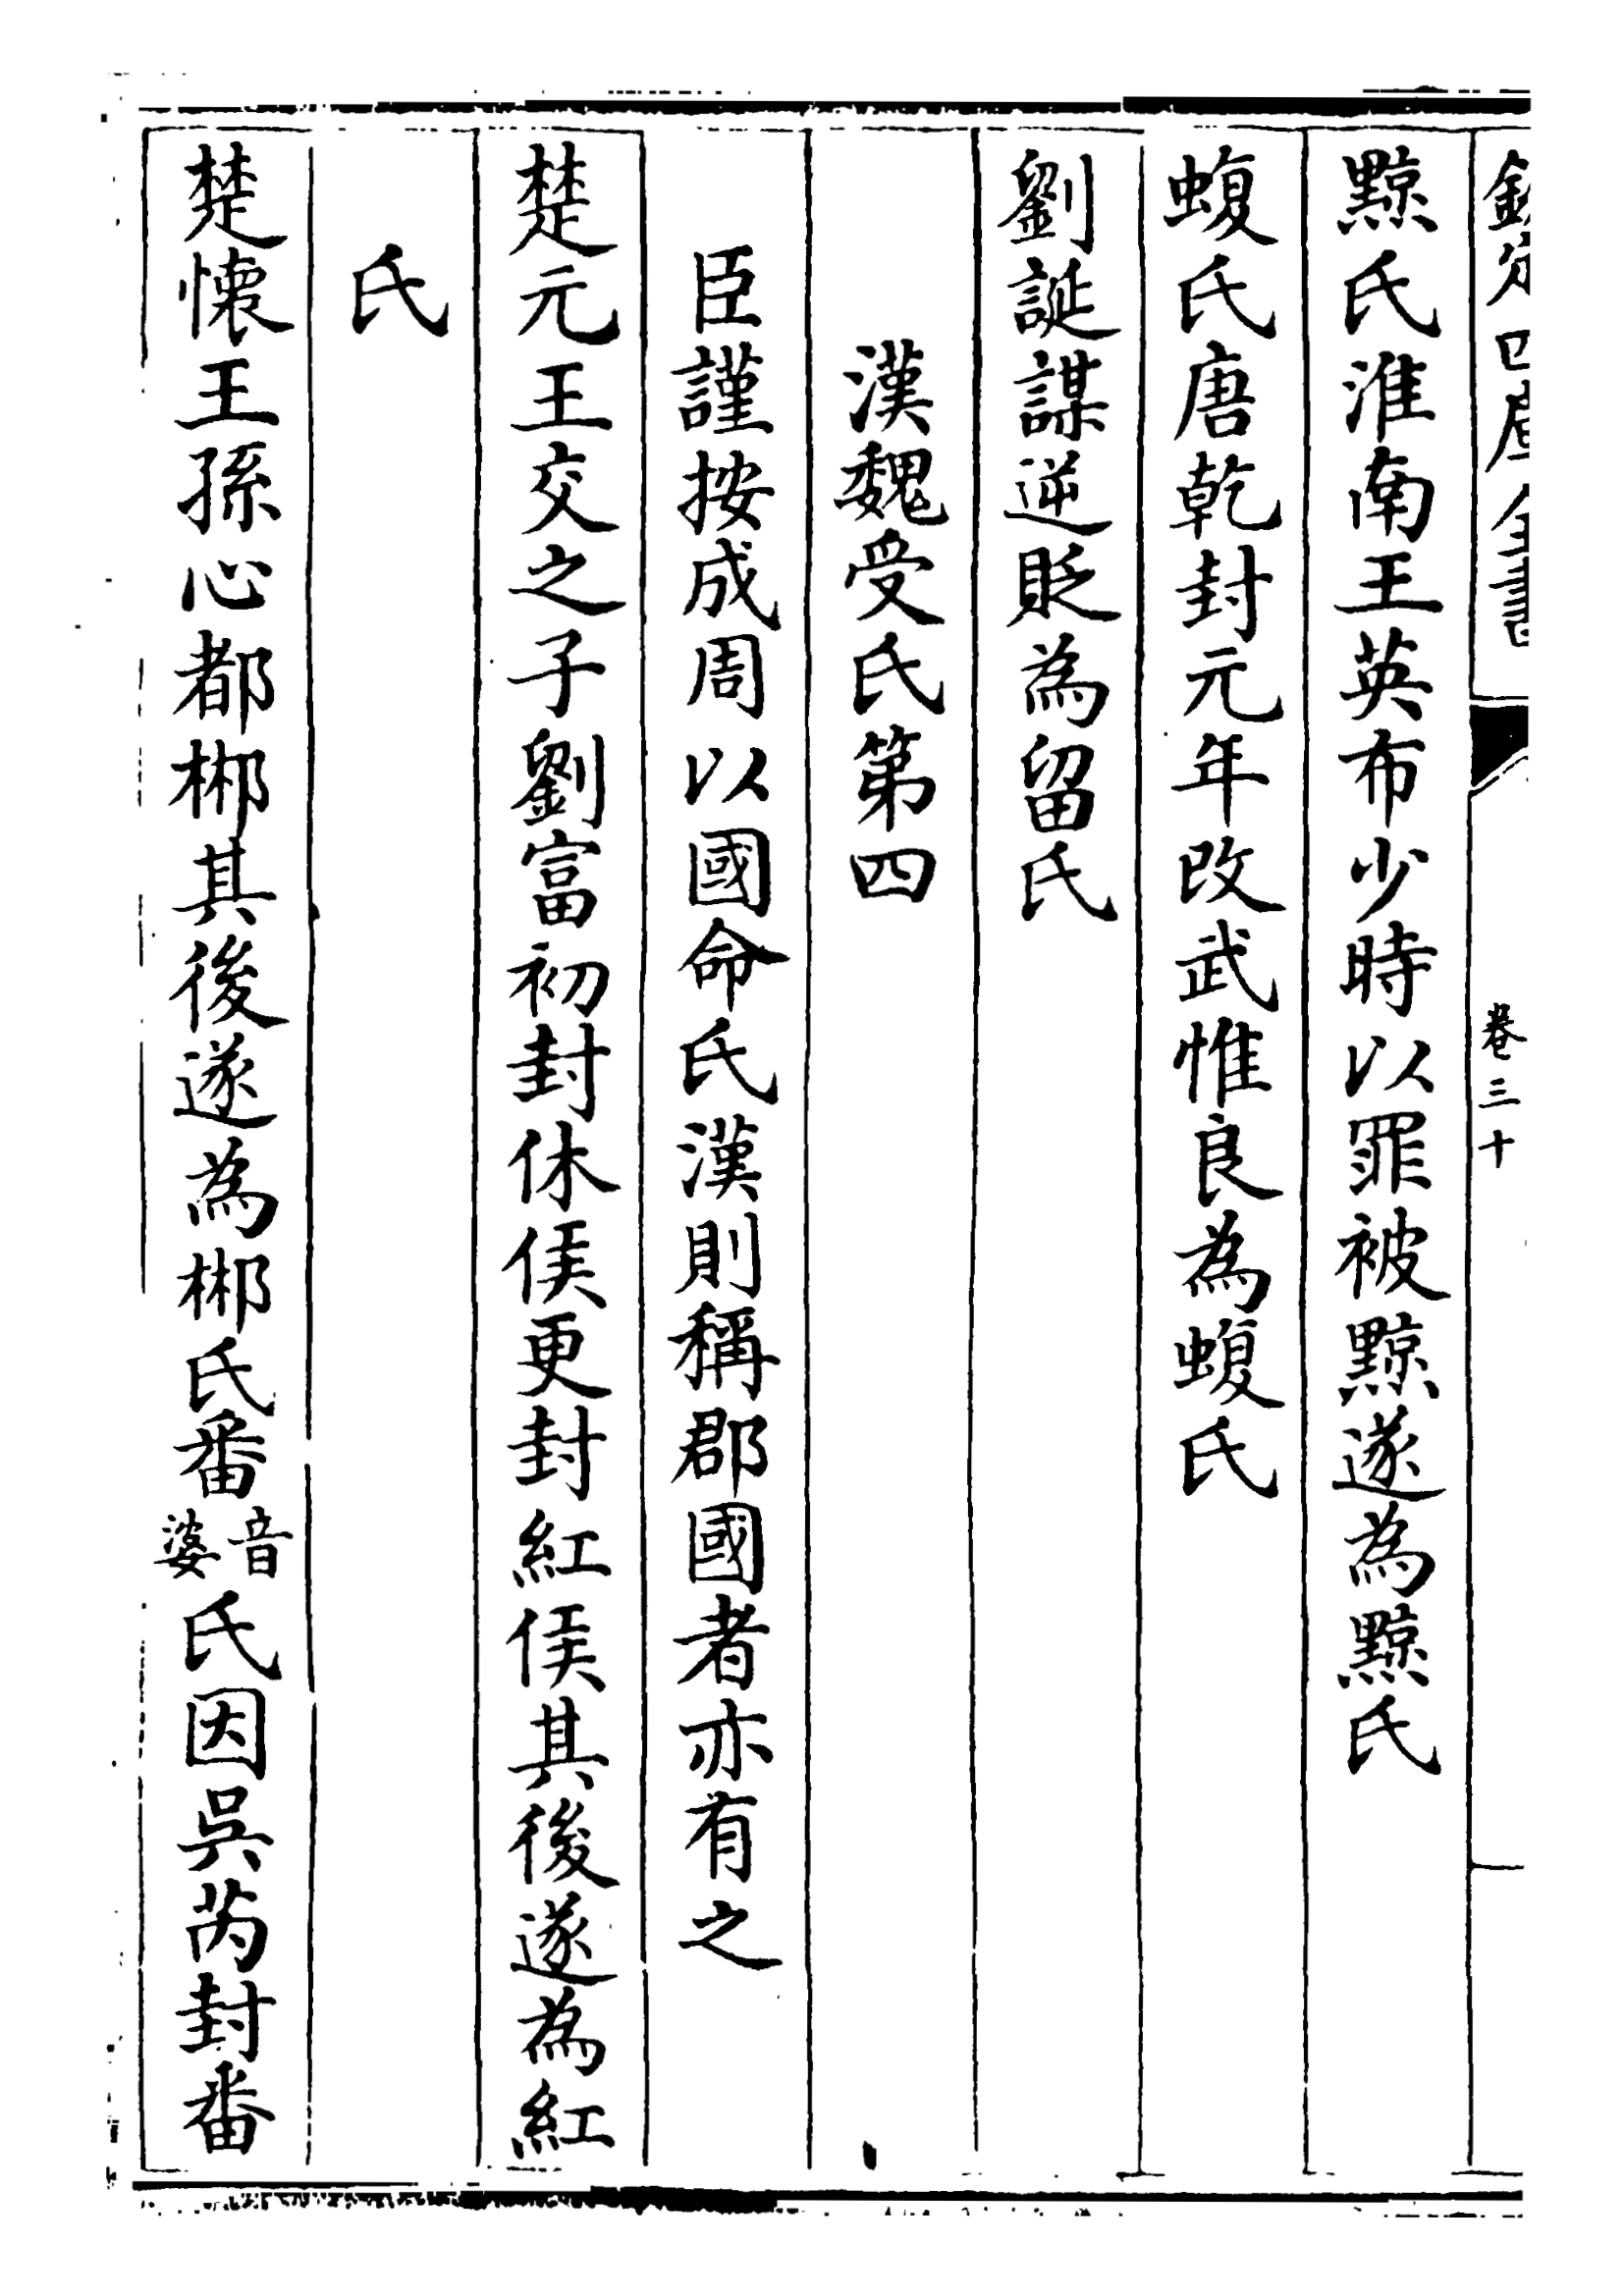 欽定四庫全書
卷三十
黥氏淮南王英布少時以罪被黥遂為黥氏
蝮氏唐乾封元年改武惟良為蝮氏
劉誕謀逆貶為留氏
漢魏受氏第四
臣謹按成周以國命氏漢則稱郡國者亦有之
楚元王交之子劉富初封休侯更封紅侯其後遂為紅
氏
楚懷王孫心都郴其後遂為郴氏番音婆氏因吳芮封番